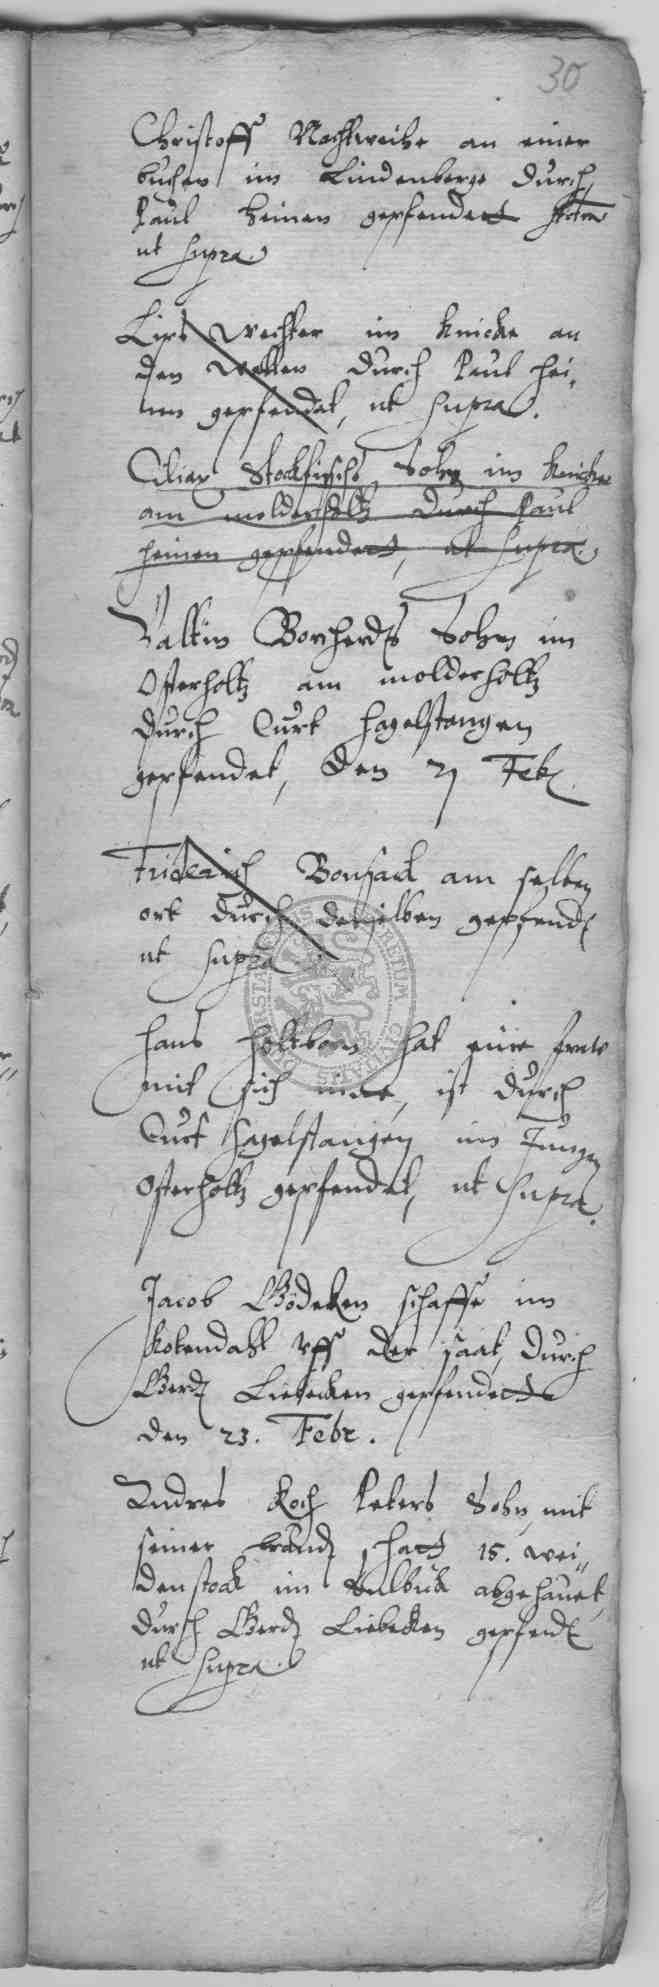 30
Christoff Nachtweihe an einer
buchen im Lindenberge durch
Paul heinen gepfendett
ut supra.
Lips wechter im knicke an
den durch Paul hei„
nen gepfendet, ut supra.
Ciliax Stockfischs Sohn im knicke
am molderholtz durch Paul
heinen gepfendett, ut supra.
Valtin Borcherds Sohn im
Osterholtz am molderholtz
durch Curt hagelstangen
gepfendet, den 21 Feb.
Friderich Bonsack am selben
ort durch denselben gepfend
ut supra
hans holtborn hat eine
mit sich, ist durch
Curt hagelstangen im Jungen
Osterholtz gepfendet, ut supra.
Jacob Gödeken schaffe im
kotendahl uff der saat, durch
Gerd Liebecken gepfendett
den 23. Febr.
Andres Koch Peters Sohn mit
seiner hatt 15. wei„
denstock im abgehauet,
durch Gerd Liebecken gepfend
ut supra.